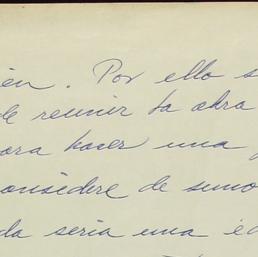 ién. Por ello s
de reunir la obra
para hacer una
considere de sumo
da sería una e